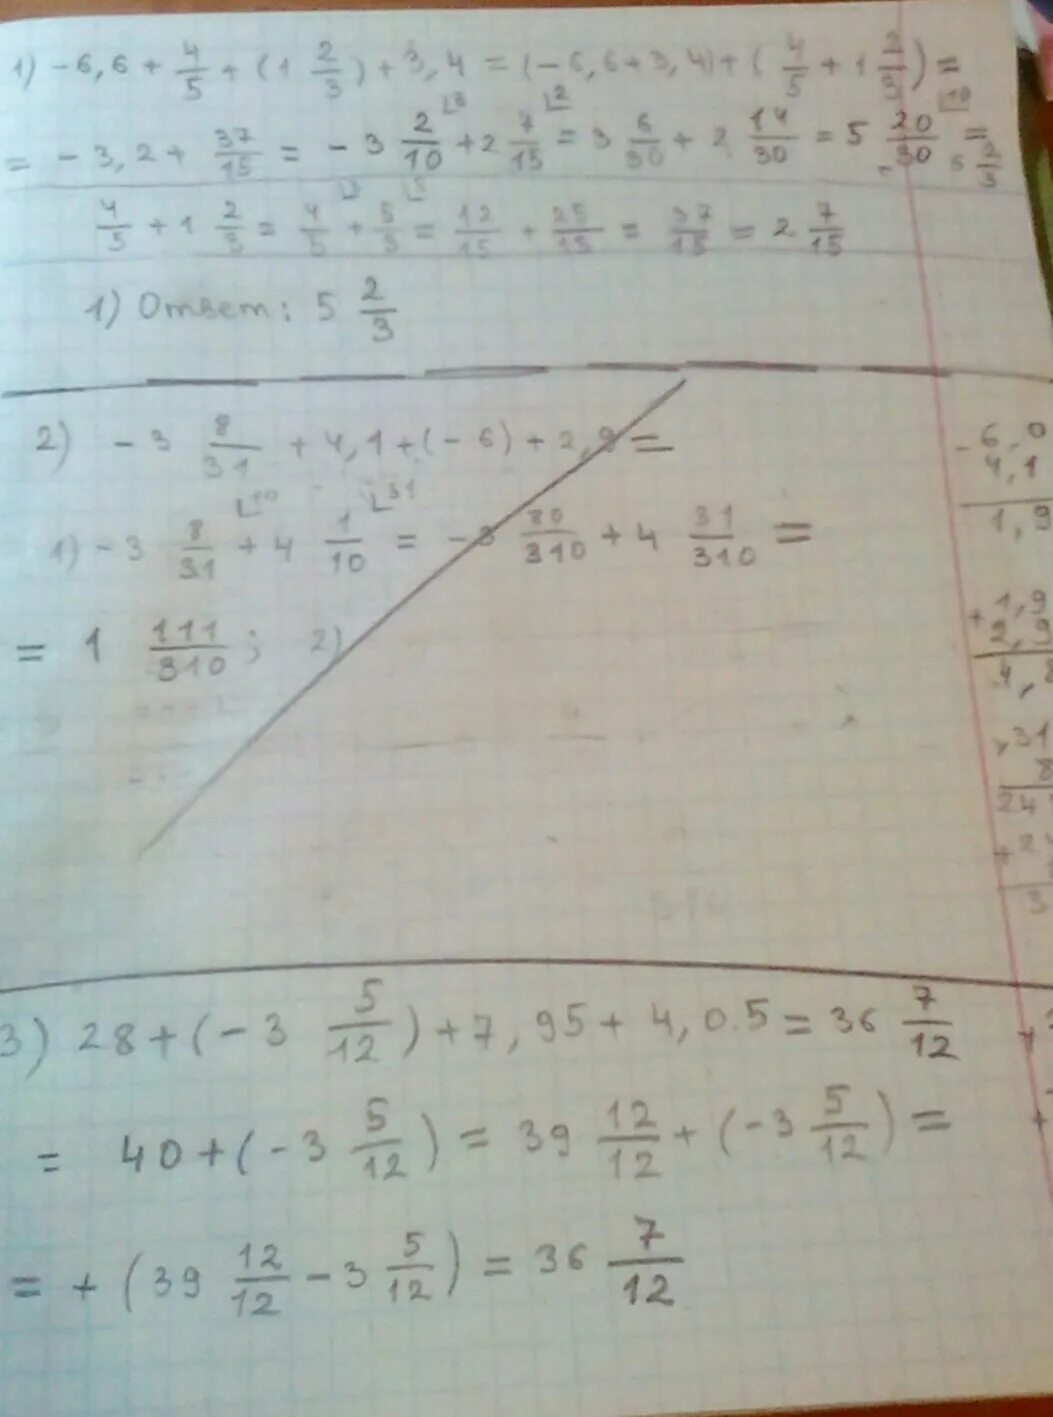 1) -6,6 + 4/5 + (1 2/3) + 3,4 = (-6,6+3,4) + (4/5 + 1 2/3) =
= -3,2 + 37/15 = -3 2/10 + 2 7/15 = 3 6/30 + 2 14/30 = 5 20/30 =
4/5 + 1 2/3 = 4/5 + 5/3 = 12/15 + 25/15 = 37/15 = 2 7/15
1) Ответ: 5 2/3
2) -3 8/31 + 4,1 + (-6) + 2,9 =
1) -3 8/31 + 4 1/10 = -3 80/310 + 4 31/310 =
= 1 111/310; 2)
- 6,0
4,1
1,9
+ 1,9
2,9
4,8
× 31
8
3) 28 + (-3 5/12) + 7,95 + 4,0.5 = 36 7/12
= 40 + (-3 5/12) = 39 12/12 + (-3 5/12) =
= + (39 12/12 - 3 5/12) = 36 7/12